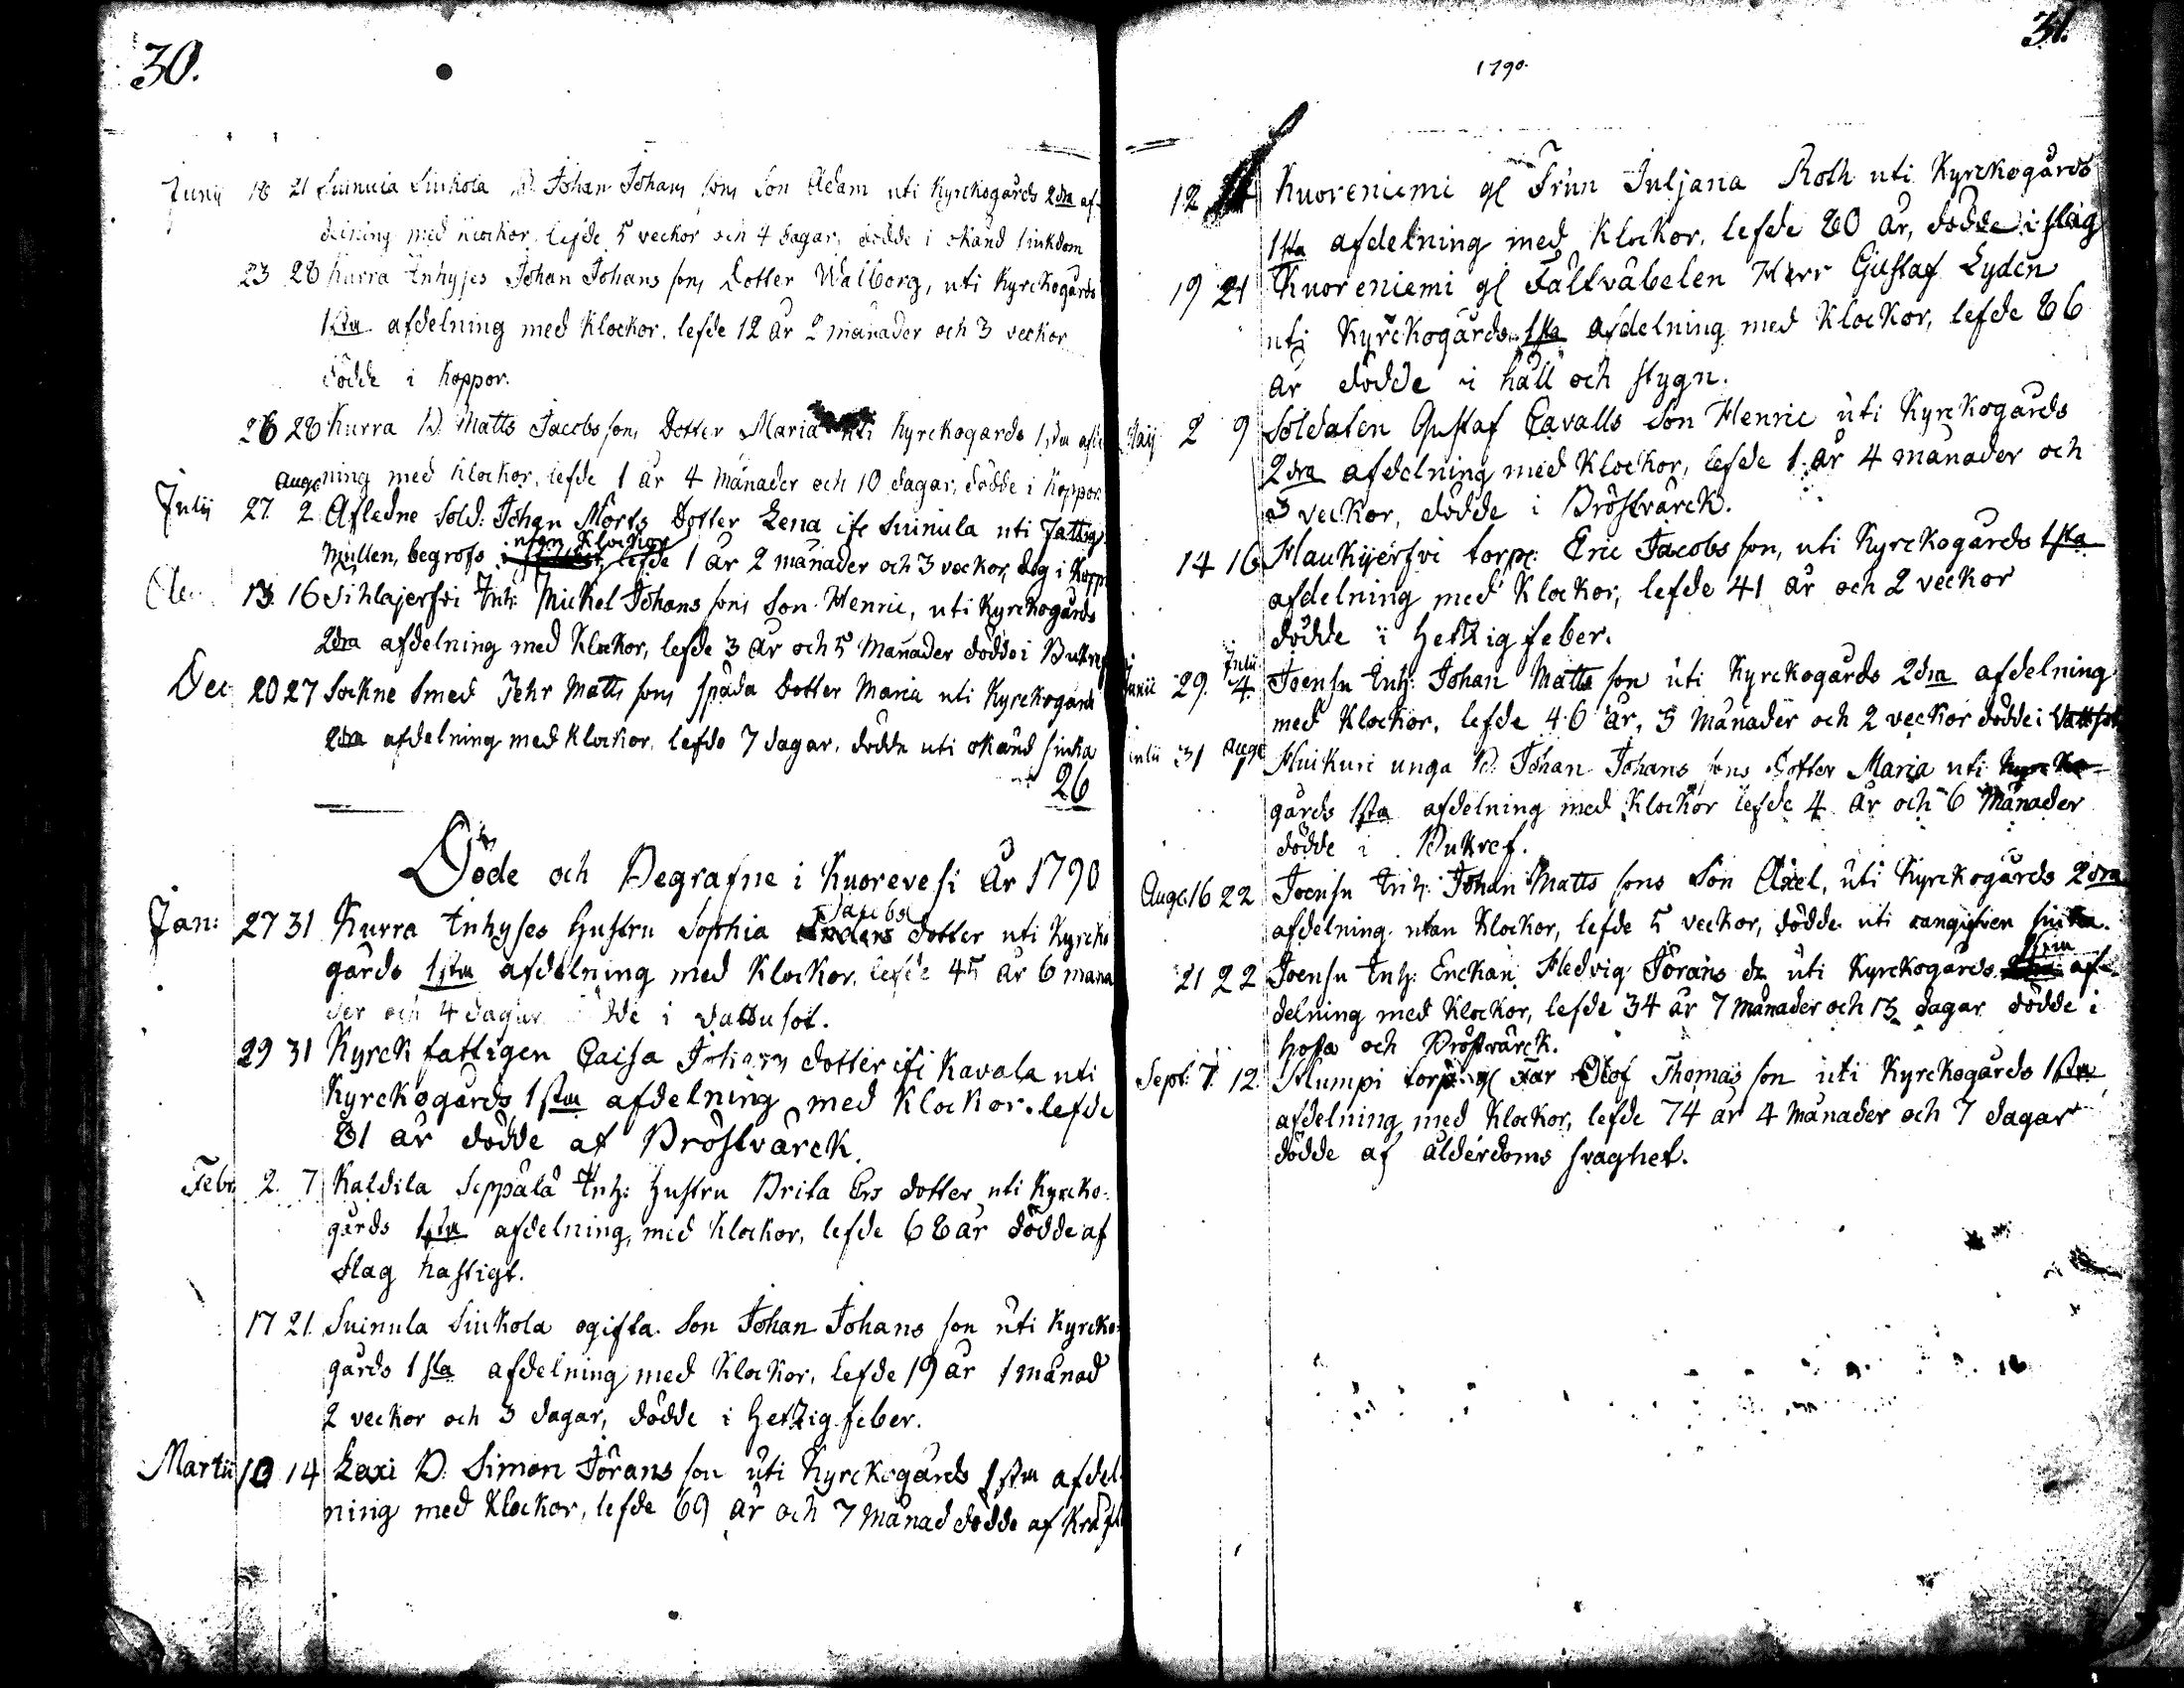 30.
Junii 18 21 Suinula Siukola B. Johan Johans sons Son Adam uti Kyrckogårds 2dra af-
delning med klockor, lefde 5 veckor och 4 dagar, dödde i okänd siukdom
23 28 Kurra Inhyses Johan Johans sons Dotter Walborg, uti Kyrckogårds
1sta afdelning med Klockor. lefde 12 år 2 månader och 3 veckor
dödde i koppor.
26 28 Kurra B. Matts Jacobs sons Dotter Maria uti Kyrckogårds 1sta afdel
ning med Klockor, lefde 1 år 4 Månader och 10 dagar, dödde i koppor
Julii 27. Aug: 2 Afledne Sold: Johan Mörts Dotter Lena ifr Suinula uti Fattig
Mullen, begrofs utan Klockor, lefde 1 år 2 månader och 3 veckor, dog i Kopp
13. 16 Sihlajerfvi Inh: Mickel Johans sons Son Henric, uti Kyrckogårds
2dra afdelning med Klockor, lefde 3 år och 5 Månader dödde i Bukref
Dec 20 27 Sockne Smed Jehr Matts sons späda Dotter Maria uti Kyrckogårds
2dra afdelning med Klockor, lefde 7 dagar, dödde uti okänd siuka
26
Döde och Begrafne i Kuorevesi År 1790
Jan: 27 31 Kurra Inhyses Hustru Sophia Jacobs dotter uti Kyrcko
gårds 1sta afdelning med Klockor, lefde 45 år 6 måna
der och 4 dagar dödde i vattusot.
29 31 Kyrck fattigen Caisa Johans dotter ifr Kavala uti
Kyrckogårds 1sta afdelning med Klockor. lefde
81 år dödde af Bröstvärck.
Febr 2. 7 Kaldila Seppälä Inh: Hustru Brita Ers dotter uti Kyrcko-
gårds 1sta afdelning, med Klockor, lefde 68 år dödde af
slag hastigt.
17 21. Suinula Siukola ogifta Son Johan Johans son uti Kyrcko-
gårds 1sta afdelning med Klockor, lefde 19 år 1 månad
2 veckor och 3 dagar, dödde i Hetzig feber.
Martii 10 14 Laxi B. Simon Jörans son uti Kyrckogårds 1sta afdel
ning med Klockor, lefde 69 år och 7 Månad dödde af Kräft
31.
1790.
12 Kuoreniemi gl Frun Juljana Roth uti Kyrckogårds
1sta afdelning med Klockor, lefde 80 år, dödde i slag
19 21 Kuoreniemi gl Fältväbelen Herr Gustaf Lydén
uti Kyrckogårds 1sta afdelning med Klockor, lefde 86
år dödde i håll och stygn.
Maij 2 9 Soldaten Gustaf Cavalls Son Henric uti Kyrckogårds
2dra afdelning med Klockor, lefde 1 år 4 månader och
3 veckor, dödde i Bröstvärck.
14 16 Haukijerfvi torp: Eric Jacobs son, uti Kyrckogårds 1sta
afdelning med Klockor, lefde 41 år och 2 veckor
dödde i Hetzig feber.
Junii 29. Julii 4. Joensu Inh: Johan Matts son uti Kyrckogårds 2dra afdelning
med Klockor, lefde 46 år, 3 Månader och 2 veckor dödde i Vattsot
Julii 31 Aug: 1 Huikuri unga B. Johan Johans sons Dotter Maria uti Kyrcko-
gårds 1sta afdelning med Klockor lefde 4 år och 6 Månader
dödde i Bukref.
Aug: 16 22 Joensu Inh: Johan Matts sons Son Axel, uti Kyrckogårds 2dra
afdelning utan Klockor, lefde 5 veckor, dödde uti oangifven siuka.
21 22 Joensu Inh: Enckan Hedvig Jörans dr uti Kyrckogårds 1sta af-
delning med Klockor, lefde 34 år 7 Månader och 13 dagar dödde i
Hosta och Bröstvärck.
Sept: 7. 12. Humpi torp: gl Far Olof Thomas son uti Kyrckogårds 1sta
afdelning med Klockor, lefde 74 år 4 Månader och 7 dagar
dödde af ålderdoms svaghet.